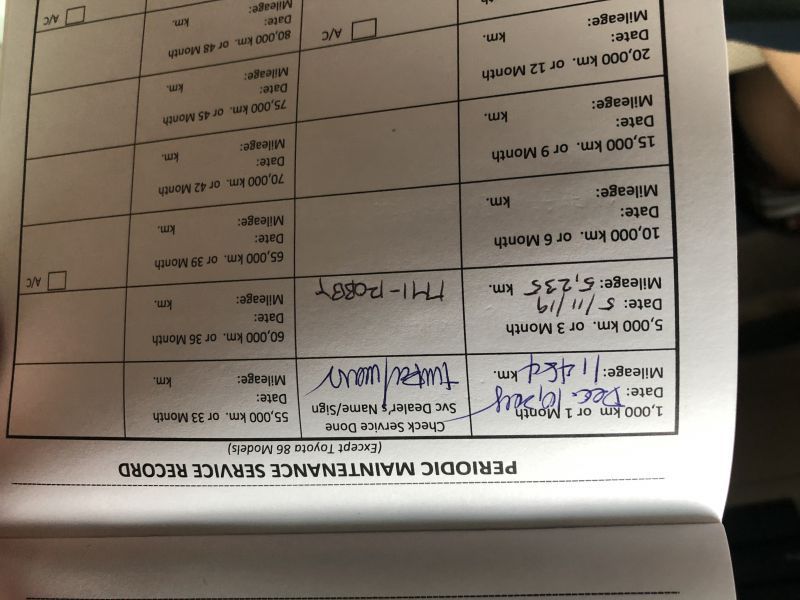 PERIODIC MAINTENANCE SERVICE RECORD
(Except Toyota 86 Models)
1,000 km or 1 Month
Date: Dec. 10,
Mileage: km.
Check Service Done
Svc Dealer's Name/Sign
5,000 km. or 3 Month
Date: 5/11/19
Mileage: 5,235 km.
10,000 km. or 6 Month
Date:
Mileage: km.
15,000 km. or 9 Month
Date:
Mileage: km.
20,000 km. or 12 Month
Date:
Mileage: km.
A/C
55,000 km. or 33 Month
Date:
Mileage: km.
60,000 km. or 36 Month
Date:
Mileage: km.
A/C
65,000 km. or 39 Month
Date:
Mileage: km.
70,000 km. or 42 Month
Date:
Mileage: km.
75,000 km. or 45 Month
Date:
Mileage: km.
80,000 km. or 48 Month
Date:
Mileage: km.
A/C